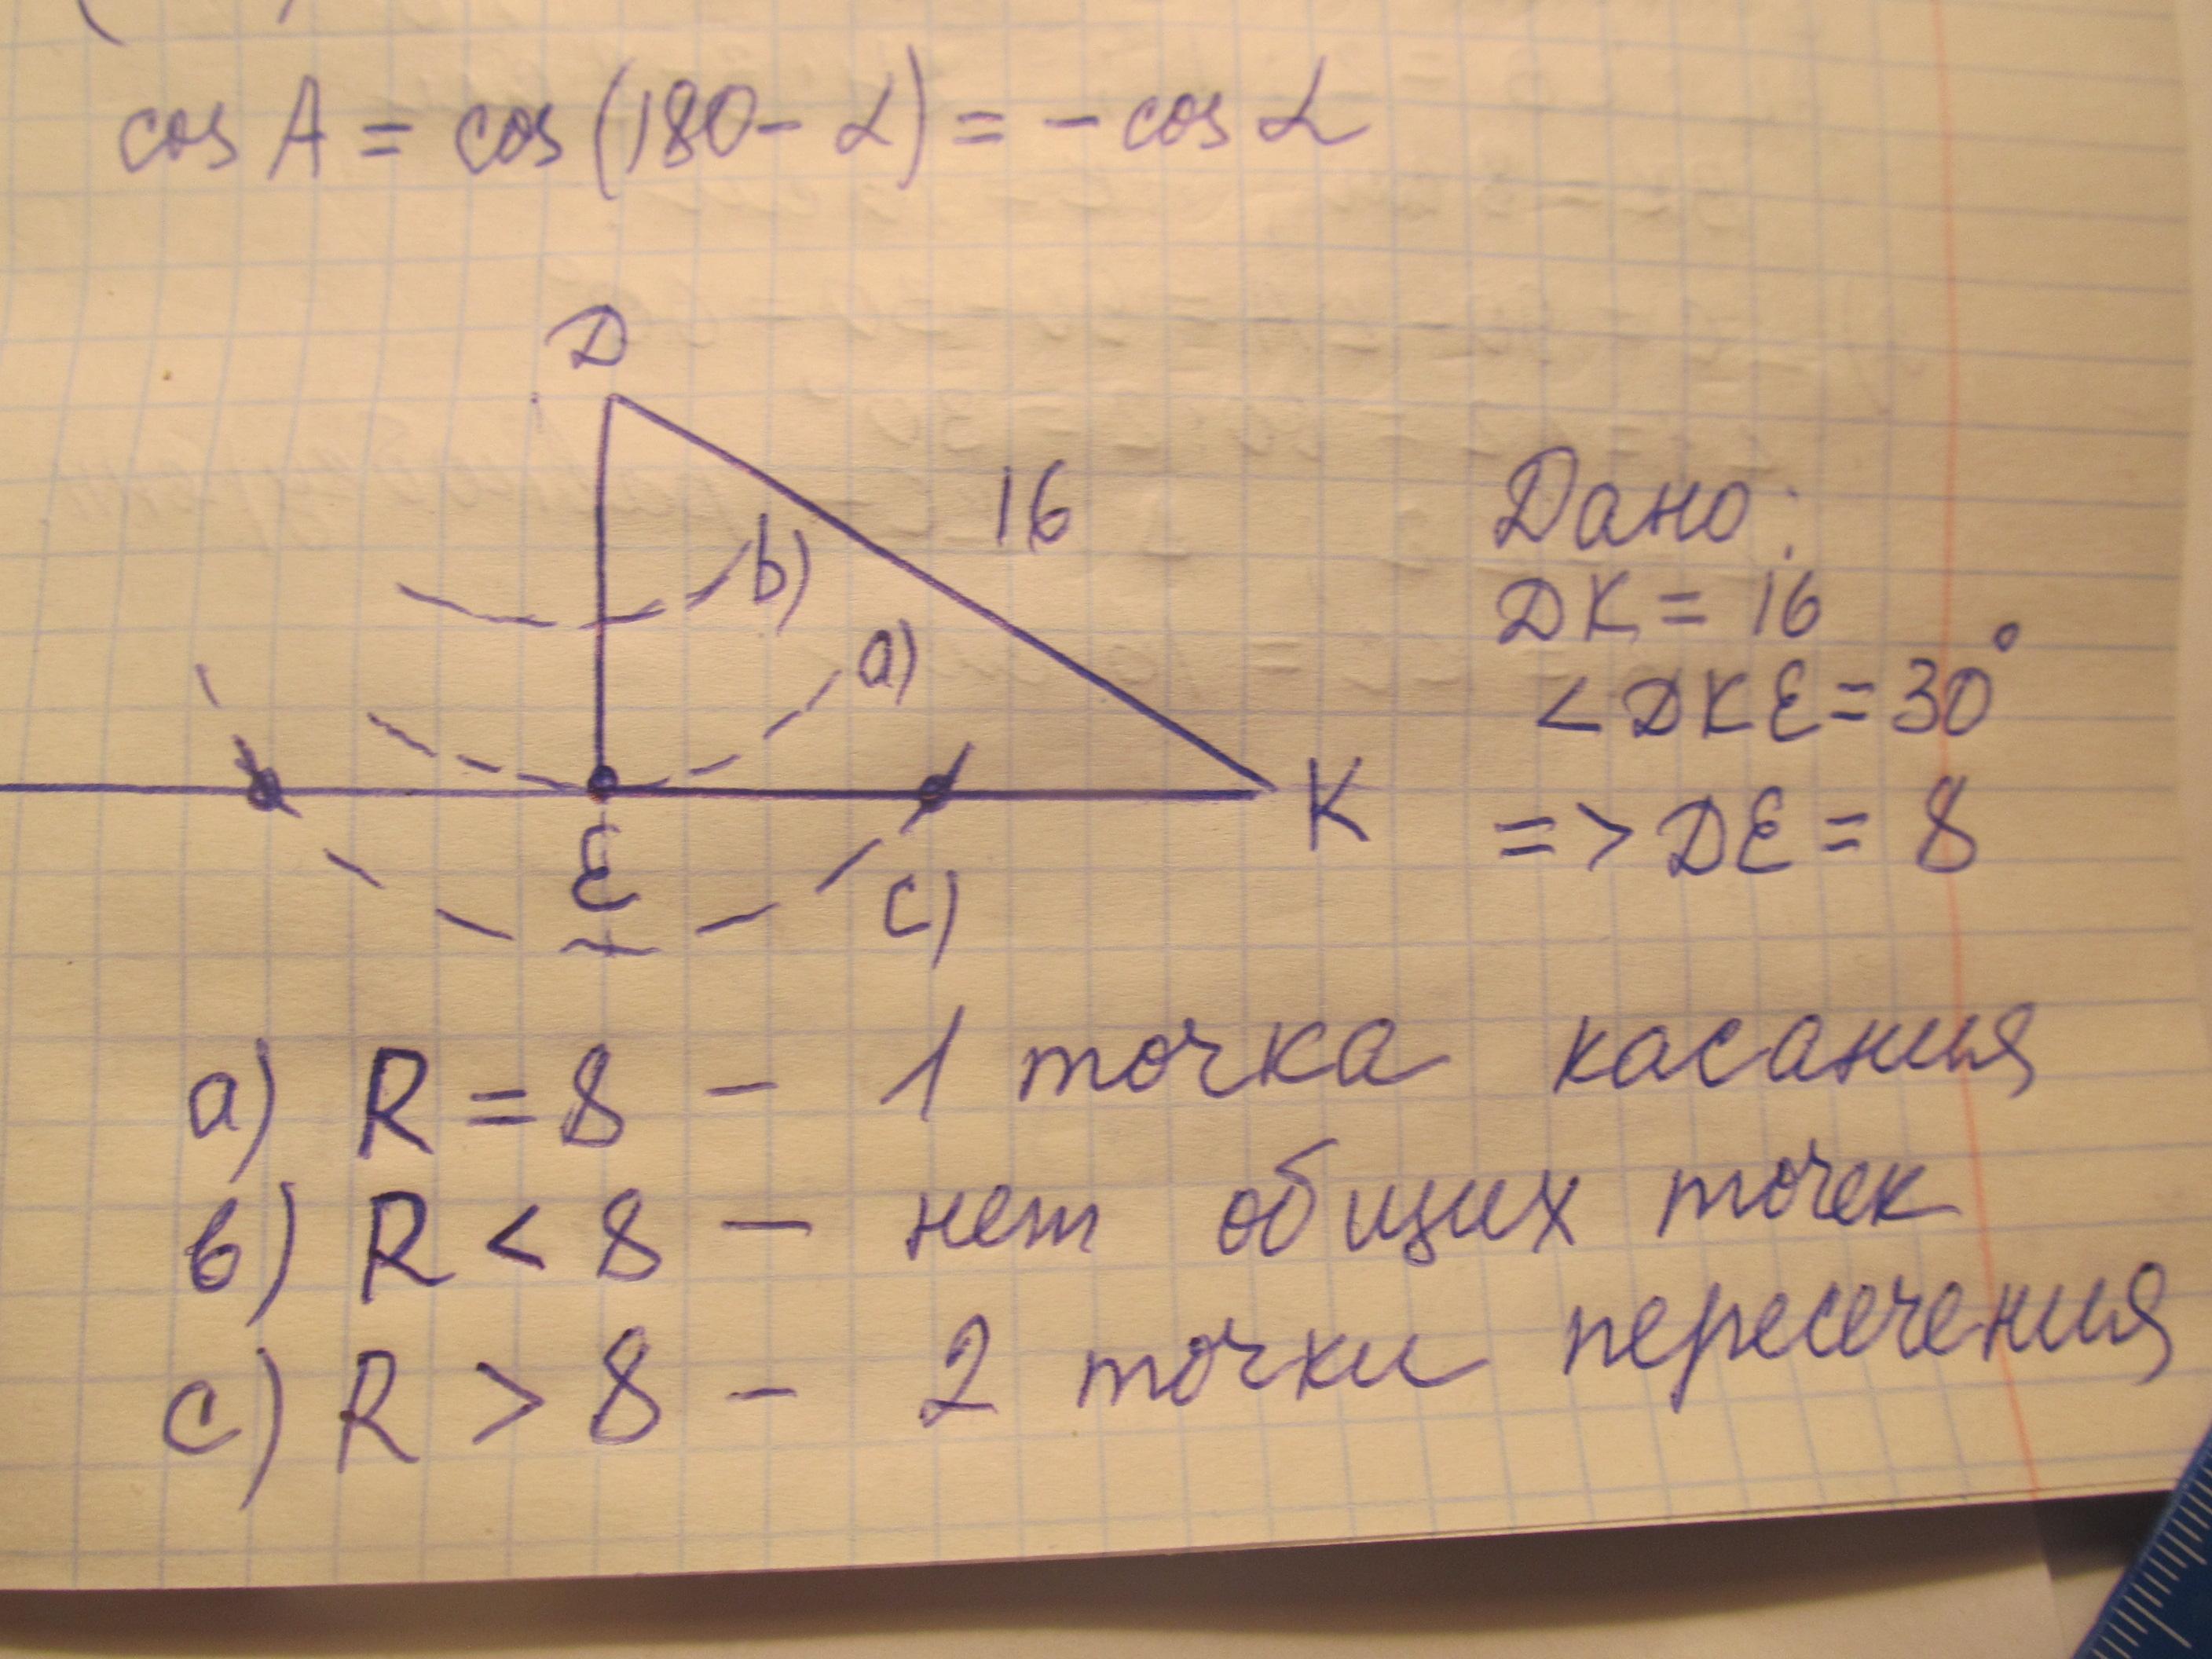 cos A = cos (180 - α) = - cos α
D
b)
16
a)
E
K
c)
Дано:
DK = 16
< DKE = 30°
=> DE = 8
a) R = 8 - 1 точка касания
b) R < 8 - нет общих точек
c) R > 8 - 2 точки пересечения